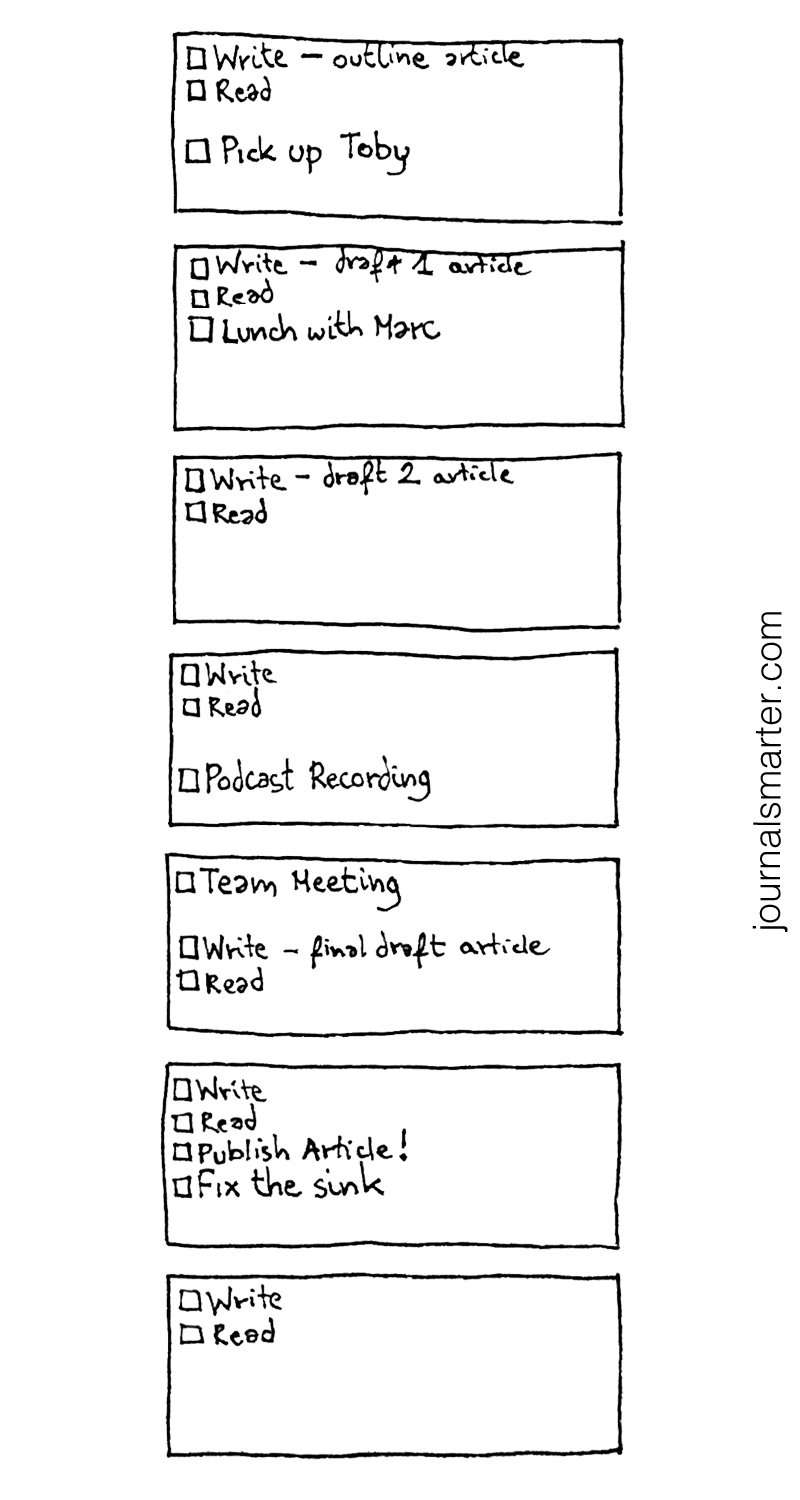 Write - outline article
Read
Pick up Toby
Write - draft 1 article
Read
Lunch with Marc
Write - draft 2 article
Read
Write
Read
Podcast Recording
Team Meeting
Write - final draft article
Read
Write
Read
Publish Article!
Fix the sink
Write
Read
journalsmarter.com